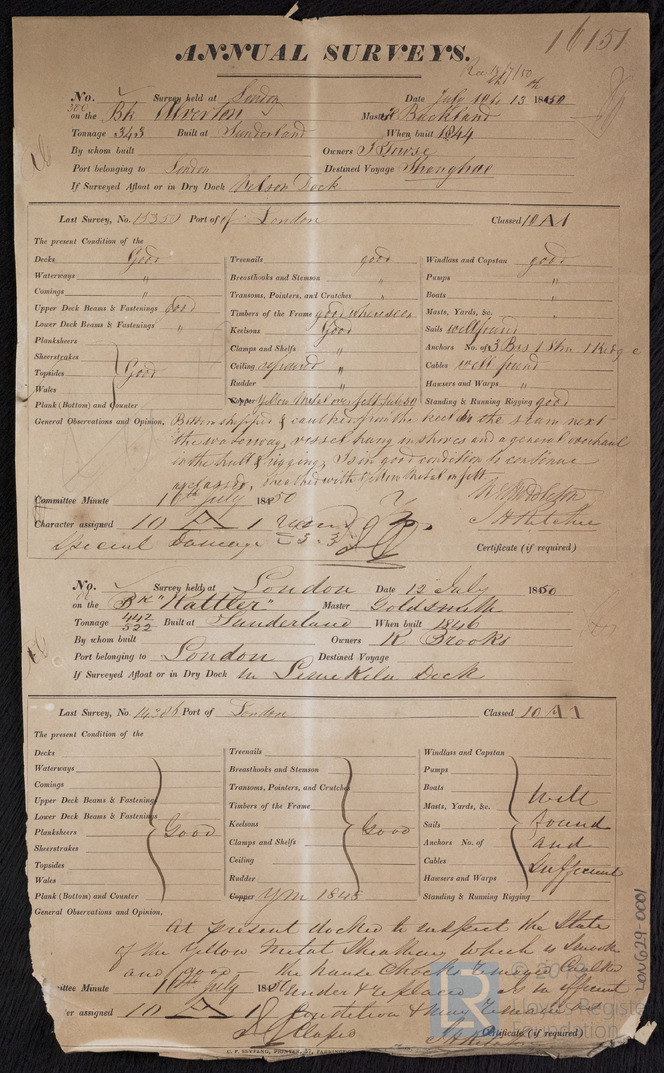 16151
ANNUAL SURVEYS.
No. Survey held at London Date July 10 to 13 1850
on the Bk Alverton Master Buckland
Tonnage 343 Built at Sunderland When built 1844
By whom built Owners
Port belonging to London Destined Voyage Shanghae
If Surveyed Afloat or in Dry Dock Nelson Dock
Last Survey, No. Port of London Classed 10 A 1
The present Condition of the
Decks Good Treenails good Windlass and Capstan good
Waterways " Breasthooks and Stemson " Pumps "
Comings " Transoms, Pointers, and Crutches " Boats "
Upper Deck Beams & Fastenings Good Timbers of the Frame good where seen Masts, Yards, &c. "
Lower Deck Beams & Fastenings " Keelsons Good Sails well found
Planksheers Clamps and Shelfs " Anchors No. of 3 Brs 1 Stm 1 Kedge
Sheerstrakes Ceiling repaired " Cables well found
Topsides Good Rudder " Hawsers and Warps "
Wales Copper Yellow Metal over felt Standing & Running Rigging good
Plank (Bottom) and Counter
General Observations and Opinion, Bottom stripped & caulked from the keel to the seam next
the waterway, vessel hung in shores and a general overhaul
in the hull & rigging, is in good condition to continue
as classed, sheathed with Yellow Metal on felt.
Committee Minute 16th July 1850
Character assigned 10 A 1
Special Damage J H Ritchie
Certificate (if required)
No. Survey held at London Date 12 July 1850
on the Bk "Rattler" Master Goldsmith
Tonnage 442/522 Built at Sunderland When built 1846
By whom built Owners R Brooks
Port belonging to London Destined Voyage
If Surveyed Afloat or in Dry Dock In Lime Kiln Dock
Last Survey, No. Port of London Classed 10 A 1
The present Condition of the
Decks Treenails Windlass and Capstan
Waterways Breasthooks and Stemson Pumps
Comings Transoms, Pointers, and Crutches Boats
Upper Deck Beams & Fastenings Timbers of the Frame Masts, Yards, &c. Well
Lower Deck Beams & Fastenings Keelsons Sails found
Planksheers Good Good Anchors No. of and
Sheerstrakes Clamps and Shelfs Cables Sufficient
Topsides Ceiling Hawsers and Warps
Wales Rudder
Plank (Bottom) and Counter Copper YM 1848 Standing & Running Rigging
General Observations and Opinion,
At present docked to inspect the State
of the Yellow Metal Sheathing which is Smooth
and good - the hause Chocks removed Caulked
mittee Minute 16th July 1850 under & replaced is in efficient
er assigned 10 A 1 Condition & may remain as
Classed
Certificate (if required)
LON629-0001
Lloyd's Register
Foundation